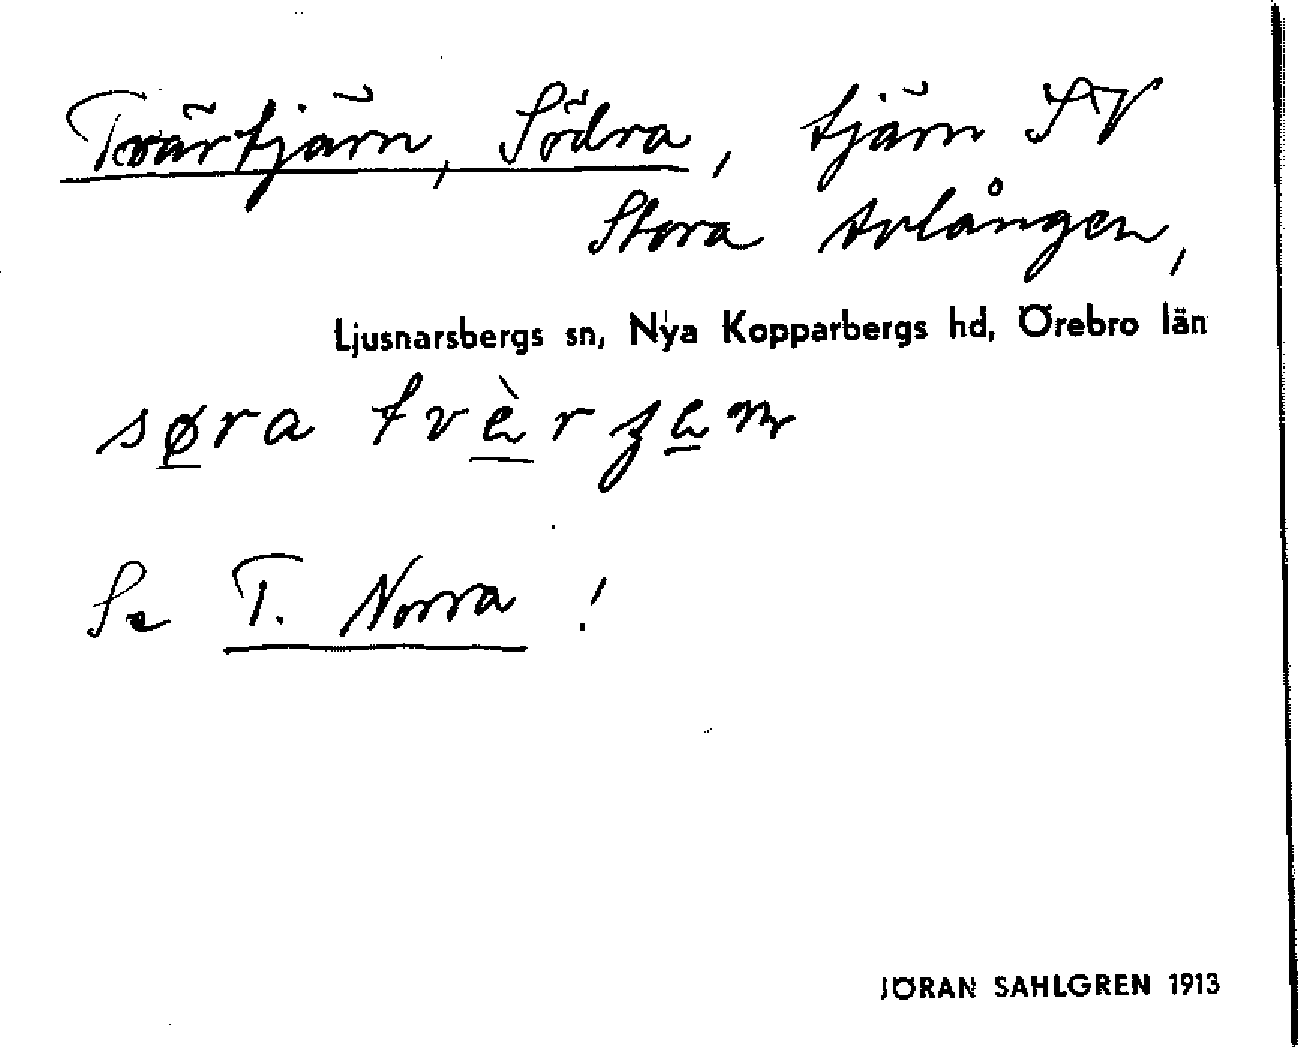 Tvärtjärn, Södra, tjärn SV
Stora Avlången,
Ljusnarsbergs sn, Nya Kopparbergs hd, Örebro län
søra
Se T. Norra !
JÖRAN SAHLGREN 1913